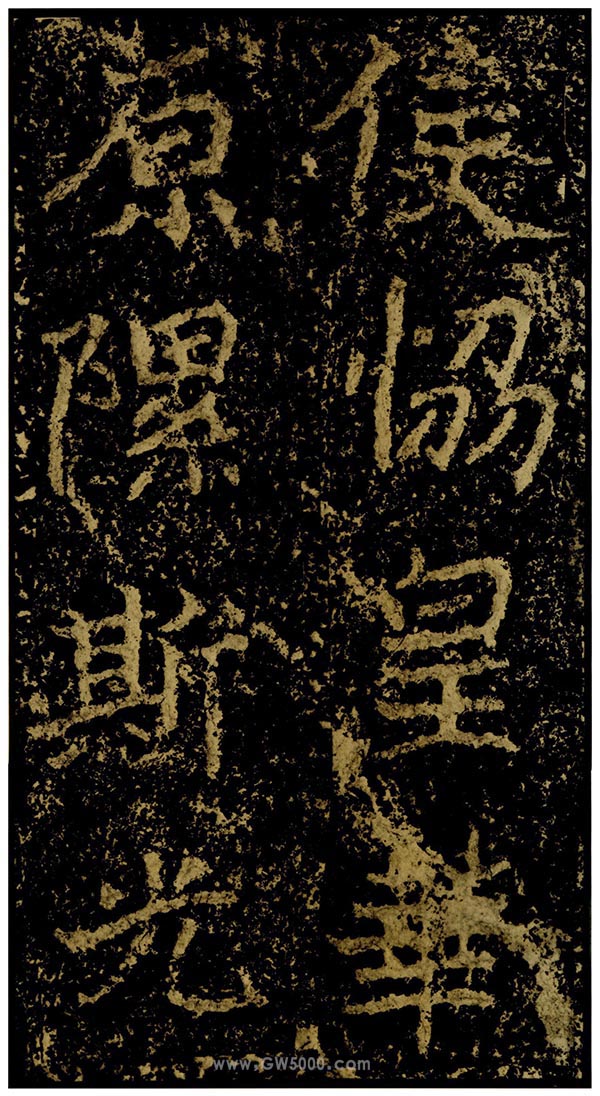 使恊皇華
原隰斯光
www.GW5000.com